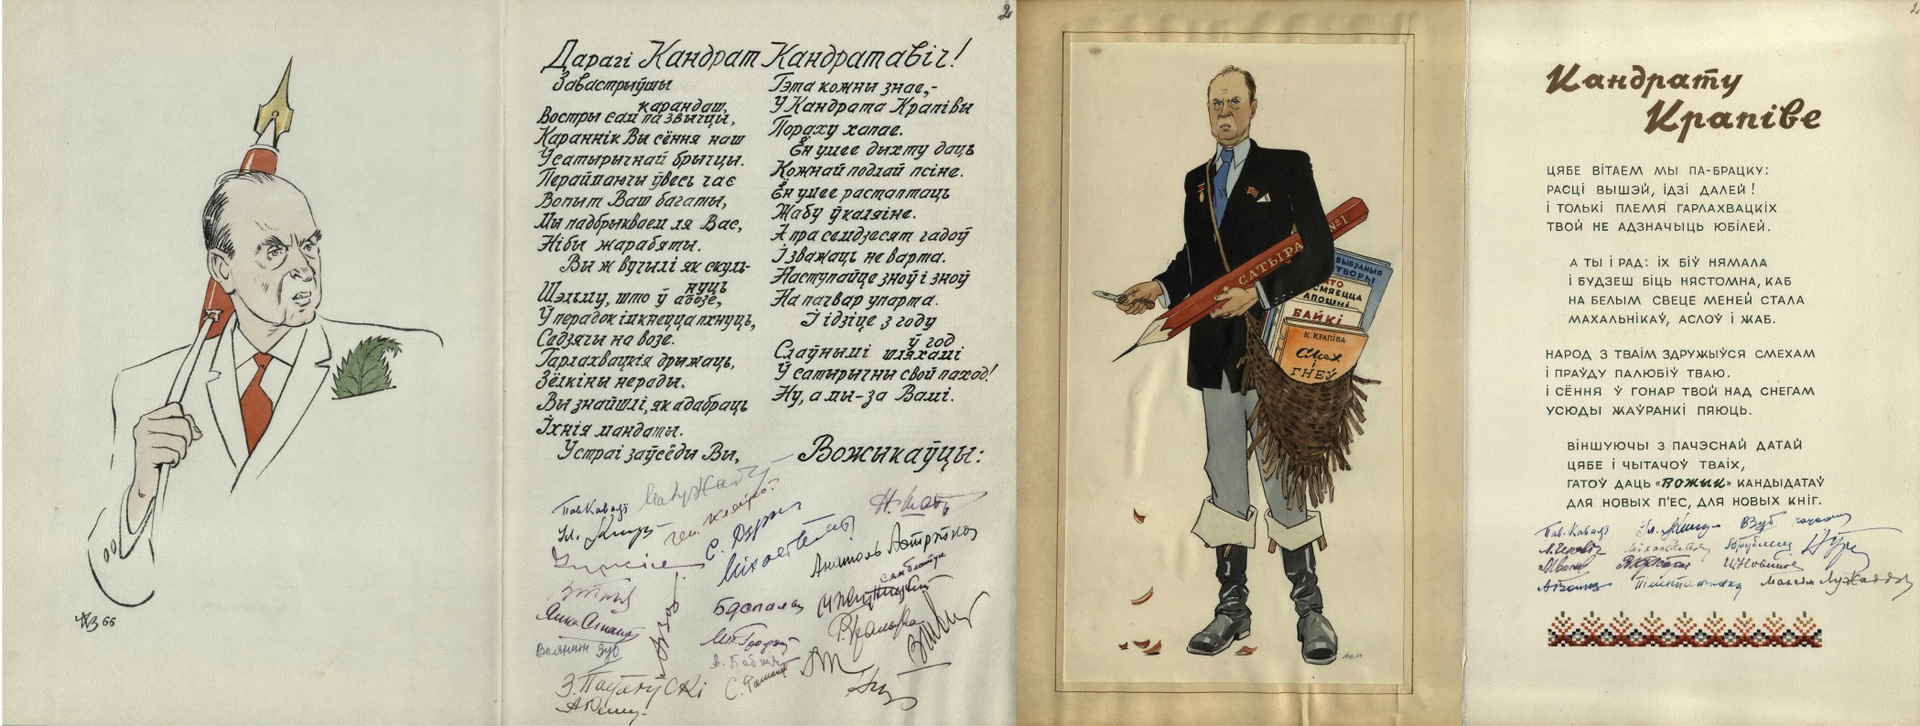 2
Дарагі Кандрат Кандратавіч!
Завастрыўшы
карандаш,
Востры сам па звычцы,
Караннік Вы сёння наш
Ў сатырычнай брычцы.
Пераймаючы ўвесь час
Вопыт Ваш багаты,
Мы падбрыкваем ля Вас,
Нібы жарабяты.
Вы ж вучылі як скуль-
нуць
Шэльму, што ў абозе,
Ў перадок імкнецца пхнуць,
Седзячы на возе.
Гарлахвацкія дрыжаць,
Зёлкіны не рады.
Вы знайшлі, як адабраць
Іхнія мандаты.
Устрai заўсёды Вы,
Гэта кожны знае,-
У Кандрата Крапівы
Пораху хапае.
Ён умее дыхту даць
Кожнай подлай псіне.
Ён умее растаптаць
Жабу ў каляіне.
А пра семдзесят гадоў
І зважаць не варта.
Наступайце зноў і зноў
На пачвар упарта.
І ідзіце з году
ў год
Слаўнымі шляхамі
Ў сатырычны свой паход!
Ну, а мы - за Вамі.
Вожыкаўцы:
Пав. Кавалёў
Н. Шаб
Анатоль Астрэйка
Бяспалы
Янка
Валянцін Зуб
З. Паўлоўскі
66
САТЫРА №1
ВЫБРАНЫЯ
ТВОРЫ
ХТО
СМЯЕЦЦА
АПОШНІ
БАЙКІ
К. КРАПІВА
Смех
і
ГНЕЎ
2
Кандрату
Крапіве
ЦЯБЕ ВІТАЕМ МЫ ПА-БРАЦКУ:
РАСЦІ ВЫШЭЙ, ІДЗІ ДАЛЕЙ!
І ТОЛЬКІ ПЛЕМЯ ГАРЛАХВАЦКІХ
ТВОЙ НЕ АДЗНАЧЫЦЬ ЮБІЛЕЙ.
А ТЫ І РАД: ІХ БІЎ НЯМАЛА
І БУДЗЕШ БІЦЬ НЯСТОМНА, КАБ
НА БЕЛЫМ СВЕЦЕ МЕНЕЙ СТАЛА
МАХАЛЬНІКАЎ, АСЛОЎ І ЖАБ.
НАРОД З ТВАІМ ЗДРУЖЫЎСЯ СМЕХАМ
І ПРАЎДУ ПАЛЮБІЎ ТВАЮ.
І СЁННЯ Ў ГОНАР ТВОЙ НАД СНЕГАМ
УСЮДЫ ЖАЎРАНКІ ПЯЮЦЬ.
ВІНШУЮЧЫ З ПАЧЭСНАЙ ДАТАЙ
ЦЯБЕ І ЧЫТАЧОЎ ТВАІХ,
ГАТОЎ ДАЦЬ «ВОЖЫК» КАНДЫДАТАЎ
ДЛЯ НОВЫХ П'ЕС, ДЛЯ НОВЫХ КНІГ.
Пав. Кавалёў
В Зуб
Максім Лужанін